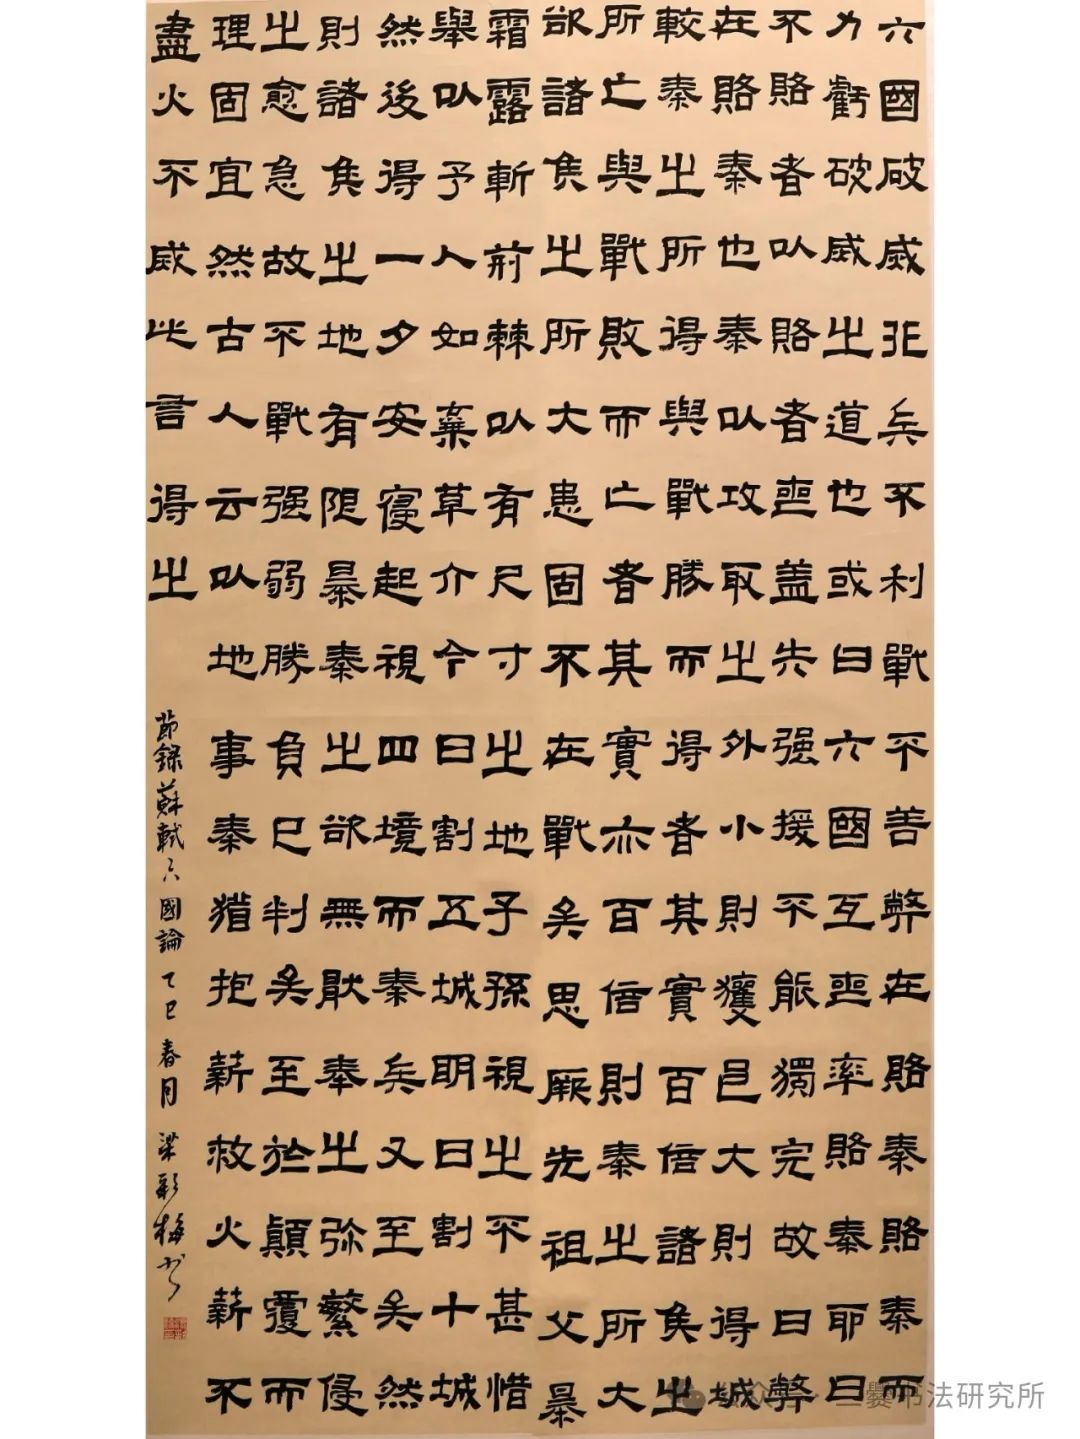 六國破烕非兵不利戰不善弊在賂秦賂秦而
力虧破烕之道也或曰六國互喪率賂秦耶曰
不賂者以賂者喪盖失强援不能獨完故曰弊
在賂秦也秦以攻取之外小則獲邑大則得城
較秦之所得與戰勝而得者其實百倍諸侯之
所亡與戰敗而亡者其實亦百倍則秦之所大
欲諸侯之所大患固不在戰矣思厥先祖父暴
霜露斬荊棘以有尺寸之地子孫視之不甚惜
舉以予人如棄草介今日割五城明日割十城
然後得一夕安寢起視四境而秦兵又至矣然
則諸侯之地有限暴秦之欲無厭奉之弥繁侵
之愈急故不戰强弱勝負已判矣至於顛覆而
理固宜然古人云以地事秦猶抱薪救火薪不
盡火不烕此言得之
節録蘇軾六國論乙巳春月梁彩梅書
公众号 · 三爨书法研究所